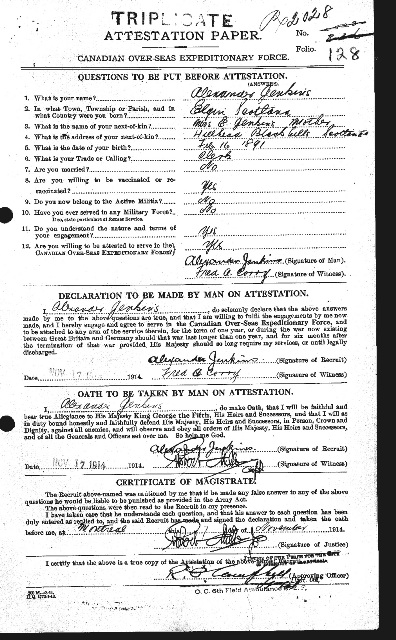 TRIPLICATE
ATTESTATION PAPER.
No.
Folio. 128
CANADIAN OVER-SEAS EXPEDITIONARY FORCE.
QUESTIONS TO BE PUT BEFORE ATTESTATION.
(ANSWERS)
1. What is your name? Alexander Jenkins
2. In what Town, Township or Parish, and in what Country were you born? Elgin Scotland
3. What is the name of your next-of-kin? Mrs E Jenkins Mother
4. What is the address of your next-of-kin? Hillhead Scotland
5. What is the date of your birth? Feb 16 1891
6. What is your Trade or Calling? Clerk
7. Are you married? No
8. Are you willing to be vaccinated or re-vaccinated? Yes
9. Do you now belong to the Active Militia? No
10. Have you ever served in any Military Force? No
If so, state particulars of former Service.
11. Do you understand the nature and terms of your engagement? Yes
12. Are you willing to be attested to serve in the CANADIAN OVER-SEAS EXPEDITIONARY FORCE? Yes
Alexander Jenkins (Signature of Man).
Fred A. Corry (Signature of Witness).
DECLARATION TO BE MADE BY MAN ON ATTESTATION.
I, Alexander Jenkins, do solemnly declare that the above answers
made by me to the above questions are true, and that I am willing to fulfil the engagements by me now
made, and I hereby engage and agree to serve in the Canadian Over-Seas Expeditionary Force, and
to be attached to any arm of the service therein, for the term of one year, or during the war now existing
between Great Britain and Germany should that war last longer than one year, and for six months after
the termination of that war provided His Majesty should so long require my services, or until legally
discharged.
Alexander Jenkins (Signature of Recruit)
Date NOV 17 1914 1914. Fred A Corry (Signature of Witness)
OATH TO BE TAKEN BY MAN ON ATTESTATION.
I, Alexander Jenkins, do make Oath, that I will be faithful and
bear true Allegiance to His Majesty King George the Fifth, His Heirs and Successors, and that I will as
in duty bound honestly and faithfully defend His Majesty, His Heirs and Successors, in Person, Crown and
Dignity, against all enemies, and will observe and obey all orders of His Majesty, His Heirs and Successors,
and of all the Generals and Officers set over me. So help me God.
Alexander Jenkins (Signature of Recruit)
Date NOV 17 1914 1914. (Signature of Witness)
CERTIFICATE OF MAGISTRATE.
The Recruit above-named was cautioned by me that if he made any false answer to any of the above
questions he would be liable to be punished as provided in the Army Act.
The above questions were then read to the Recruit in my presence.
I have taken care that he understands each question, and that his answer to each question has been
duly entered as replied to, and the said Recruit has made and signed the declaration and taken the oath
before me, at Montreal this day of November 1914.
(Signature of Justice)
I certify that the above is a true copy of the Attestation of the above-named Recruit.
(Approving Officer)
O. C. 6th Field Ambulance